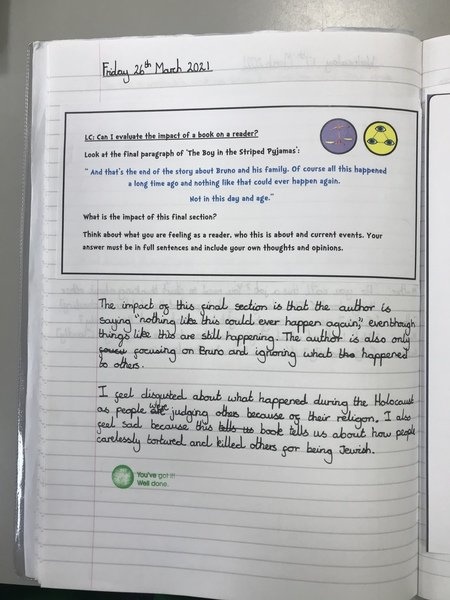 Friday 26th March 2021
LC: Can I evaluate the impact of a book on a reader?
Look at the final paragraph of 'The Boy in the Striped Pyjamas':
" And that's the end of the story about Bruno and his family. Of course all this happened
a long time ago and nothing like that could ever happen again.
Not in this day and age."
What is the impact of this final section?
Think about what you are feeling as a reader, who this is about and current events. Your
answer must be in full sentences and include your own thoughts and opinions.
The impact of this final section is that the author is
saying "nothing like this could ever happen again," eventhough
things like this are still happening. The author is also only
focusing on Bruno and ignoring what the happened
to others.
I feel disgusted about what happened during the Holocaust
as people were judging others because of their religion. I also
feel sad because this tells us book tells us about how people
carelessly tortured and killed others for being Jewish.
You've got it!
Well done.